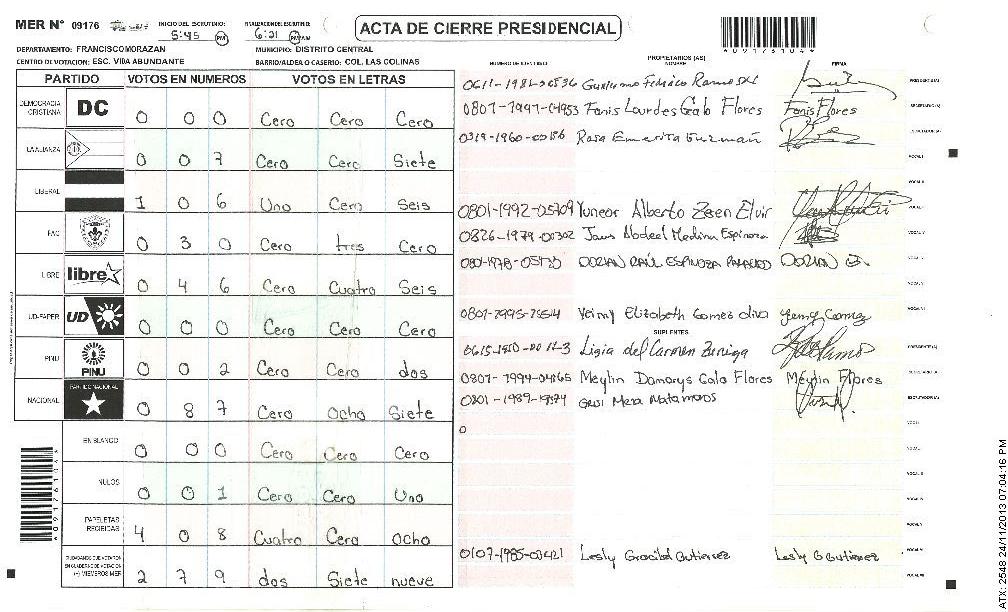 MER N° 09176
INICIO DEL ESCRUTINIO: 5:45 PM
FINALIZACION DEL ESCRUTINIO: 6:21 PM
ACTA DE CIERRE PRESIDENCIAL
*09176104*
DEPARTAMENTO: FRANCISCO MORAZAN
MUNICIPIO: DISTRITO CENTRAL
CENTRO DE VOTACION: ESC. VIDA ABUNDANTE
BARRIO/ALDEA O CASERIO: COL. LAS COLINAS
PARTIDO VOTOS EN NUMEROS VOTOS EN LETRAS
DEMOCRACIA CRISTIANA DC 0 0 0 Cero Cero Cero
LA ALIANZA 0 0 7 Cero Cero Siete
LIBERAL 1 0 6 Uno Cero Seis
PAC 0 3 0 Cero tres Cero
LIBRE libre 0 4 6 Cero Cuatro Seis
UD-FAPER UD 0 0 0 Cero Cero Cero
PINU PINU 0 0 2 Cero Cero dos
NACIONAL PARTIDO NACIONAL 0 8 7 Cero Ocho Siete
EN BLANCO 0 0 0 Cero Cero Cero
NULOS 0 0 1 Cero Cero Uno
PAPELETAS RECIBIDAS 4 0 8 Cuatro Cero Ocho
CIUDADANOS QUE VOTARON EN CUADERNO DE VOTACION (+) MIEMBROS MER 2 7 9 dos Siete nueve
NUMERO DE IDENTIDAD PROPIETARIOS (AS) NOMBRE FIRMA
Guillermo Ramos PRESIDENTE (A)
Fanis Lourdes Galo Flores Fanis Flores SECRETARIO (A)
0319-1960-00156 Rosa Emerita Guzmán ESCRUTADOR (A)
VOCAL I
VOCAL II
0801-1992-05709 Alberto Elvir
0826-1979-00302 Medina Espinoza
DORIAN RAÚL ESPINOZA DORIAN E.
Yeimy Elizabeth Gomes Oliva Yeimy Gomez
SUPLENTES
Ligia del Carmen Zuniga PRESIDENTE (A)
Meylin Damarys Galo Flores Meylin Flores SECRETARIO (A)
Mera Matamoros ESCRUTADOR (A)
0107-1985-00421 Lesly Gutierrez Lesly G Gutierrez
ATX: 2548 24/11/2013 07:04:16 PM